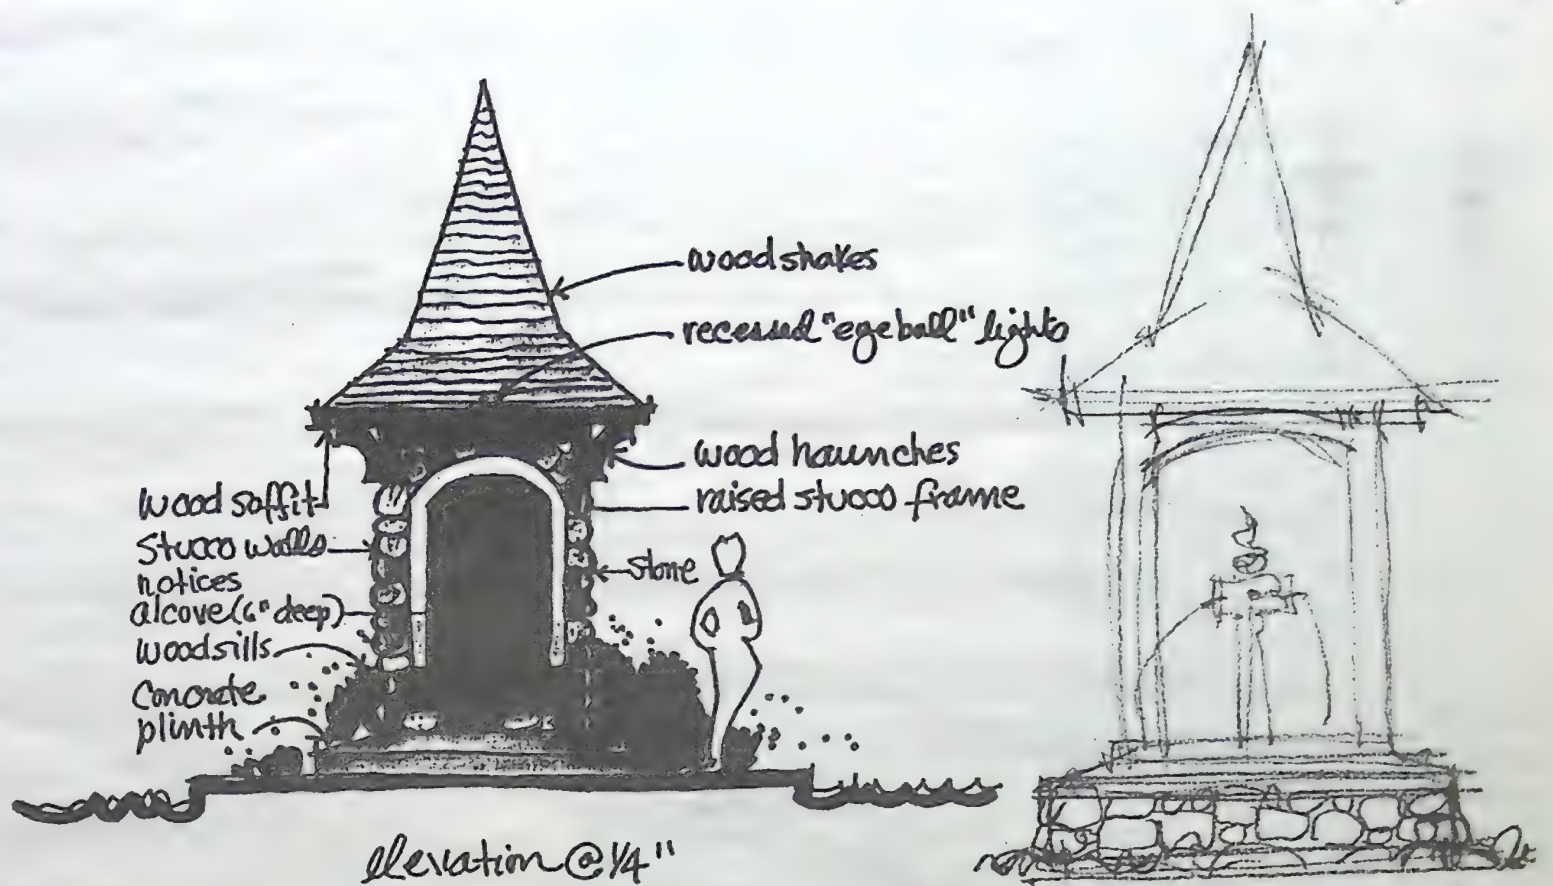 wood shakes
recessed "eyeball" lights
wood haunches
raised stucco frame
stone
wood soffit
stucco walls
notices
alcove (6" deep)
wood sills
concrete
plinth
elevation @ 1/4"